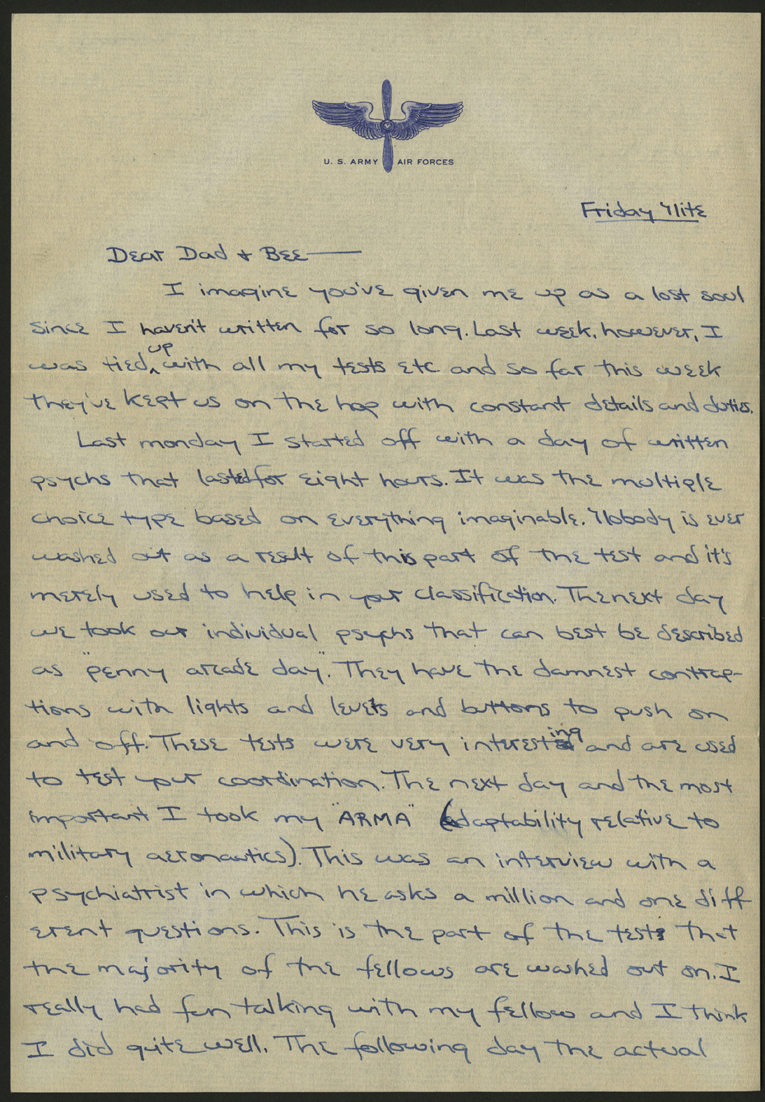 U. S. ARMY AIR FORCES
Friday Nite
Dear Dad & Bee—
I imagine you've given me up as a lost soul
since I haven't written for so long. Last week, however, I
was tied up with all my tests etc and so far this week
they've kept us on the hop with constant details and duties.
Last monday I started off with a day of written
psychs that lasted for eight hours. It was the multiple
choice type based on everything imaginable. Nobody is ever
washed out as a result of this part of the test and it's
merely used to help in your classification. The next day
we took our individual psychs that can best be described
as "penny arcade day". They have the damnest contrap-
tions with lights and levers and buttons to push on
and off. These tests were very interesting and are used
to test your coordination. The next day and the most
important I took my "ARMA" (adaptability relative to
military aeronautics). This was an interview with a
psychiatrist in which he asks a million and one diff
erent questions. This is the part of the tests that
the majority of the fellows are washed out on. I
really had fun talking with my fellow and I think
I did quite well. The following day the actual